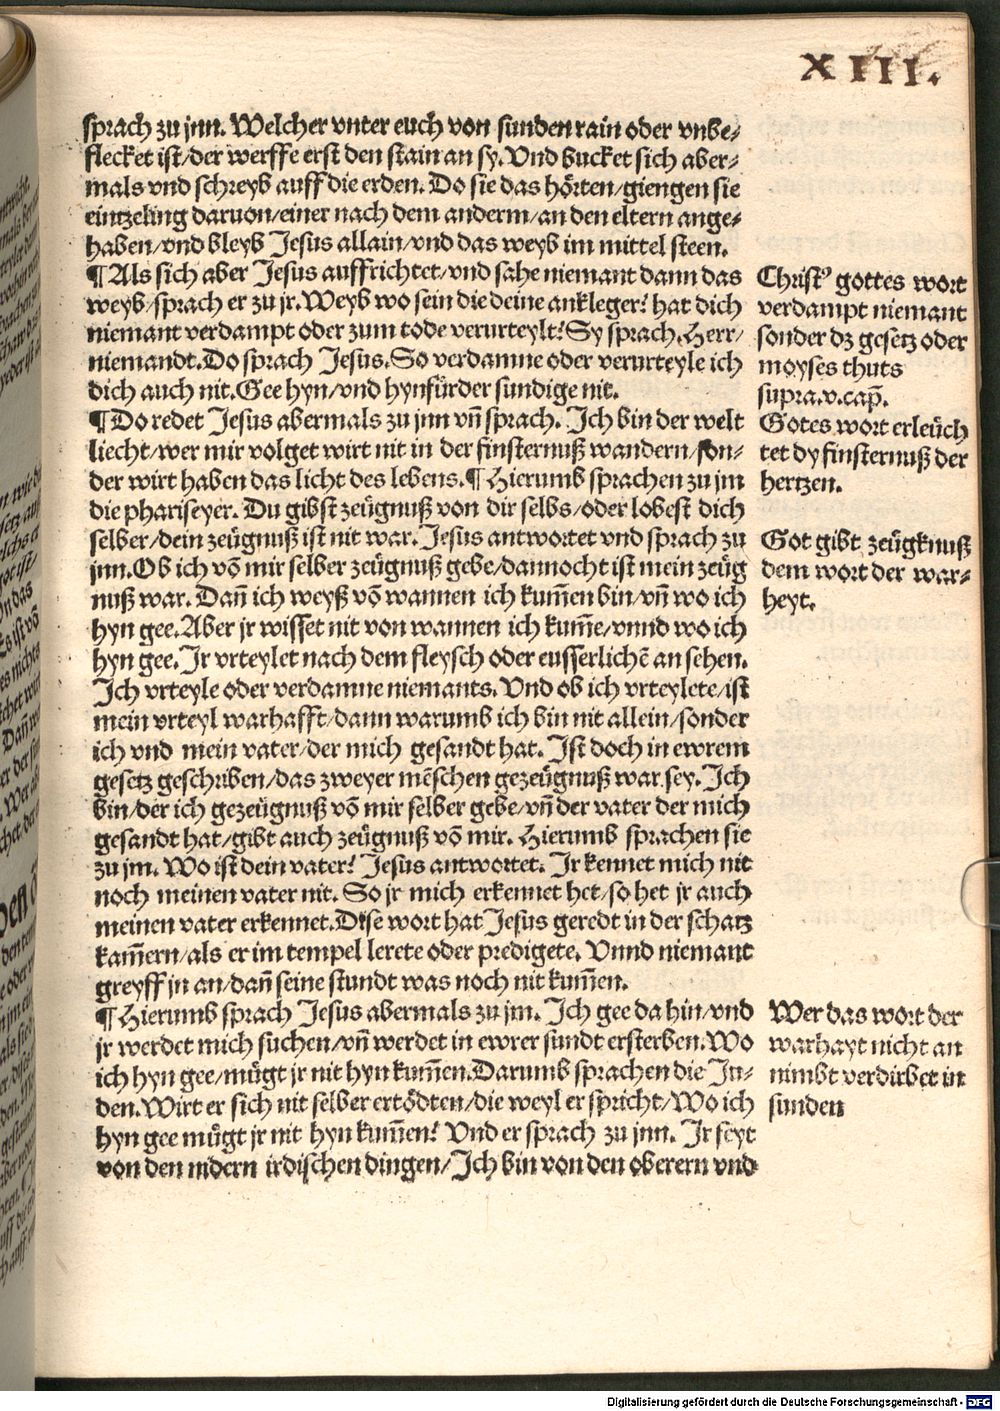 XIII.
sprach zu jnn. Welcher vnter euch von sunden rain oder vnbe⸗
flecket ist/der werffe erst den stain an sy. Vnd bucket sich aber⸗
mals vnd schreyb auff die erden. Do sie das hörten/giengen sie
eintzeling daruon/einer nach dem anderm/an den eltern ange⸗
haben/vnd bleyb Jesus allain/vnd das weyb im mittel steen.
¶ Als sich aber Jesus auffrichtet/vnd sahe niemant dann das
weyb/sprach er zu jr. Weyb wo sein die deine ankleger? hat dich
niemant verdampt oder zum tode verurteylt? Sy sprach. Herr/
niemandt. Do sprach Jesus. So verdamne oder verurteyle ich
dich auch nit. Gee hyn/vnd hynfürder sundige nit.
¶ Do redet Jesus abermals zu jnn vn̄ sprach. Ich bin der welt
liecht/wer mir volget wirt nit in der finsternuß wandern/son⸗
der wirt haben das licht des lebens. ¶ Hierumb sprachen zu jm
die phariseyer. Du gibst zeügnuß von dir selbs/oder lobest dich
selber/dein zeügnuß ist nit war. Jesus antwortet vnd sprach zu
jnn. Ob ich vō mir selber zeügnuß gebe/dannocht ist mein zeüg
nuß war. Dan̄ ich weyß vō wannen ich kum̄en bin/vn̄ wo ich
hyn gee. Aber jr wisset nit von wannen ich kum̄e/vnnd wo ich
hyn gee. Jr vrteylet nach dem fleysch oder eusserlichē an sehen.
Ich vrteyle oder verdamne niemants. Vnd ob ich vrteylete/ist
mein vrteyl warhafft/dann warumb ich bin nit allein/sonder
ich vnd mein vater/der mich gesandt hat. Ist doch in ewrem
gesetz geschriben/das zweyer mēschen gezeügnuß war sey. Ich
bin/der ich gezeügnuß vō mir selber gebe/vn̄ der vater der mich
gesandt hat/gibt auch zeügnuß vō mir. Hierumb sprachen sie
zu jm. Wo ist dein vater? Jesus antwortet. Jr kennet mich nit
noch meinen vater nit. So jr mich erkennet het/so het jr auch
meinen vater erkennet. Dise wort hat Jesus geredt in der schatz
kam̄ern/als er im tempel lerete oder predigete. Vnnd niemant
greyff jn an/dan̄ seine stundt was noch nit kum̄en.
¶ Hierumb sprach Jesus abermals zu jm. Ich gee da hin/vnd
jr werdet mich suchen/vn̄ werdet in ewrer sundt ersterben. Wo
ich hyn gee/mügt jr nit hyn kum̄en. Darumb sprachen die Ju⸗
den. Wirt er sich nit selber ertödten/die weyl er spricht/Wo ich
hyn gee mügt jr nit hyn kum̄en? Vnd er sprach zu jnn. Jr seyt
von den nidern irdischen dingen/Ich bin von den oberern vnd
Christꝰ gottes wort
verdampt niemant
sonder dz gesetz oder
moyses thuts
supra.v.cap̄.
Gotes wort erleüch
tet dy finsternuß der
hertzen.
Got gibt zeügknuß
dem wort der war⸗
heyt.
Wer das wort der
warhayt nicht an
nimbt verdirbet in
sunden
Digitalisierung gefördert durch die Deutsche Forschungsgemeinschaft - DFG